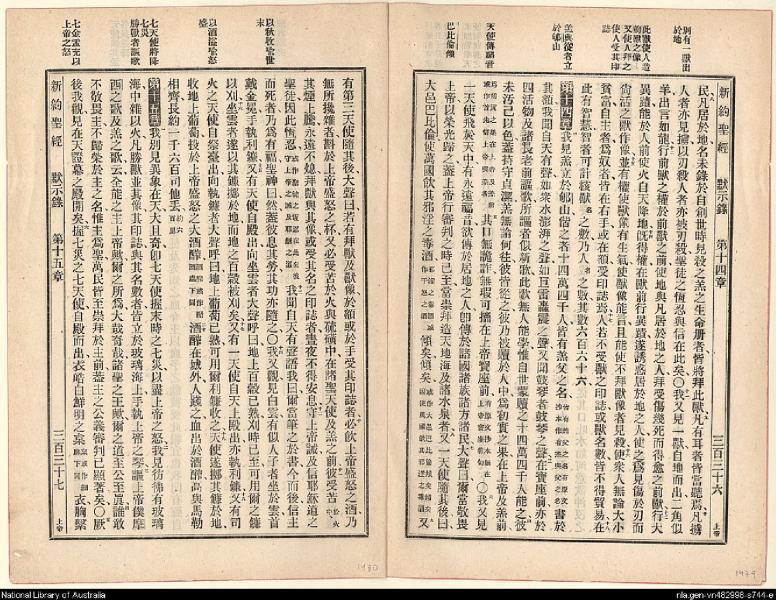 別有一獸出於地
此獸使人造前獸之像又使人拜之
使人受其印誌
羔與從者立於郇山
天使傳福音
巴比倫傾
新約聖經 默示錄 第十四章 三百三十六 上帝
民凡居於地名未錄於自創世時見殺之羔之生命册者皆將拜此獸凡有耳者皆當聽焉凡擄
人者亦見擄以刃殺人者亦被刃殺聖徒之恆忍與信在此矣○我又見一獸自地而出二角似
羊出言如龍行前獸之權於前獸之前使地與凡居於地之人拜受傷幾死而得愈之前獸行大
異蹟能於人前使火自天降地旣得權在獸前行異蹟遂誘惑居於地之人使之爲見傷於刃而
尚活之獸作像並有權使獸像有生氣使獸像能言且能使不拜獸像者見殺使衆人無論大小
貧富自主者爲奴者皆在右手或在額受印誌爲人若不受獸之印誌或獸名數皆不得貿易在
此有智慧智者可計核獸名之數乃人之數其數六百六十六
第十四章 我見羔立於郇山偕之者十四萬四千人皆有羔父之名書於
其額我聞自天有聲如衆水澎湃之聲如巨雷轟轟之聲又聞鼓琴者鼓琴之聲在寶座前亦於
四活物及諸長老前謳歌所謳者似新歌此歌無人能學惟自世蒙贖之十四萬四千人能之彼
未汚己以色蓋持守貞潔羔無論何往彼皆從之彼乃被贖於人中爲初實之果在上帝及羔前
其口無詭詐無瑕可摘在上帝寶座前○我又見
一天使飛於天中有永遠福音欲傳於居地之人卽傳於諸國諸族諸方諸民大聲曰爾當敬畏
上帝以榮光歸之蓋上帝行審判之時已至當崇拜造天地海及諸水泉者又一天使隨其後曰
大邑巴比倫使萬國飲其邪淫之毒酒傾矣傾矣又
以秋收喻世末
以酒醡喻怒盛
七天使將降七災
勝獸者謳歌
七金盂充以上帝之怒
有第三天使隨其後大聲曰若有拜獸及獸像於額或於手受其印誌者必飲上帝盛怒之酒乃
無所攙雜者斟於上帝盛怒之杯又必受苦於火與硫磺中在諸聖天使及羔之前彼受苦
其煙上騰永遠不熄拜獸與其像或受其名之印誌者晝夜不得安息守上帝誡及信耶穌道之
聖徒因此恆忍我聞自天有聲語我曰爾當筆之於書今而後信主
而死者乃爲有福聖神曰然蓋彼息其勞其功亦隨之○我又觀見白雲有似人子者坐於雲首
戴金冕手執利鐮又有天使自殿出向坐雲者大聲呼曰地上百穀已熟刈時已至可用爾之鐮
以刈坐雲者遂以其鐮擲於地而地之百穀被刈矣又有一天使自天上殿出亦執利鐮又有司
火之天使自祭臺出向執鐮者大聲呼曰地上葡萄已熟可用爾利鐮收之天使遂擲其鐮於地
收地上葡萄投於上帝盛怒之大酒醡酒醡在城外人踐之血出於酒醡高與馬勒
相齊長約一千六百司他丟
第十五章 我別見異象在天大且奇卽七天使握末時之七災以盡上帝之怒我見彷彿有玻璃
海中雜以火凡勝獸並其像其印誌與其名數者皆立於玻璃海上手執上帝之琴謳上帝僕摩
西之歌及羔之歌云全能之主上帝歟爾之所爲大哉奇哉諸聖之王歟爾之道至公至眞誰敢
不敬畏主不歸榮於主之名惟主爲聖萬民皆至崇拜於主前蓋主之公義審判已顯著矣○厥
後我觀見在天證幕之殿開矣握七災之七天使自殿而出衣皓白鮮明之枲衣胸繫
新約聖經 默示錄 第十五章 三百三十七 上帝
1980
1979
National Library of Australia
nla.gen-vn482998-s744-e